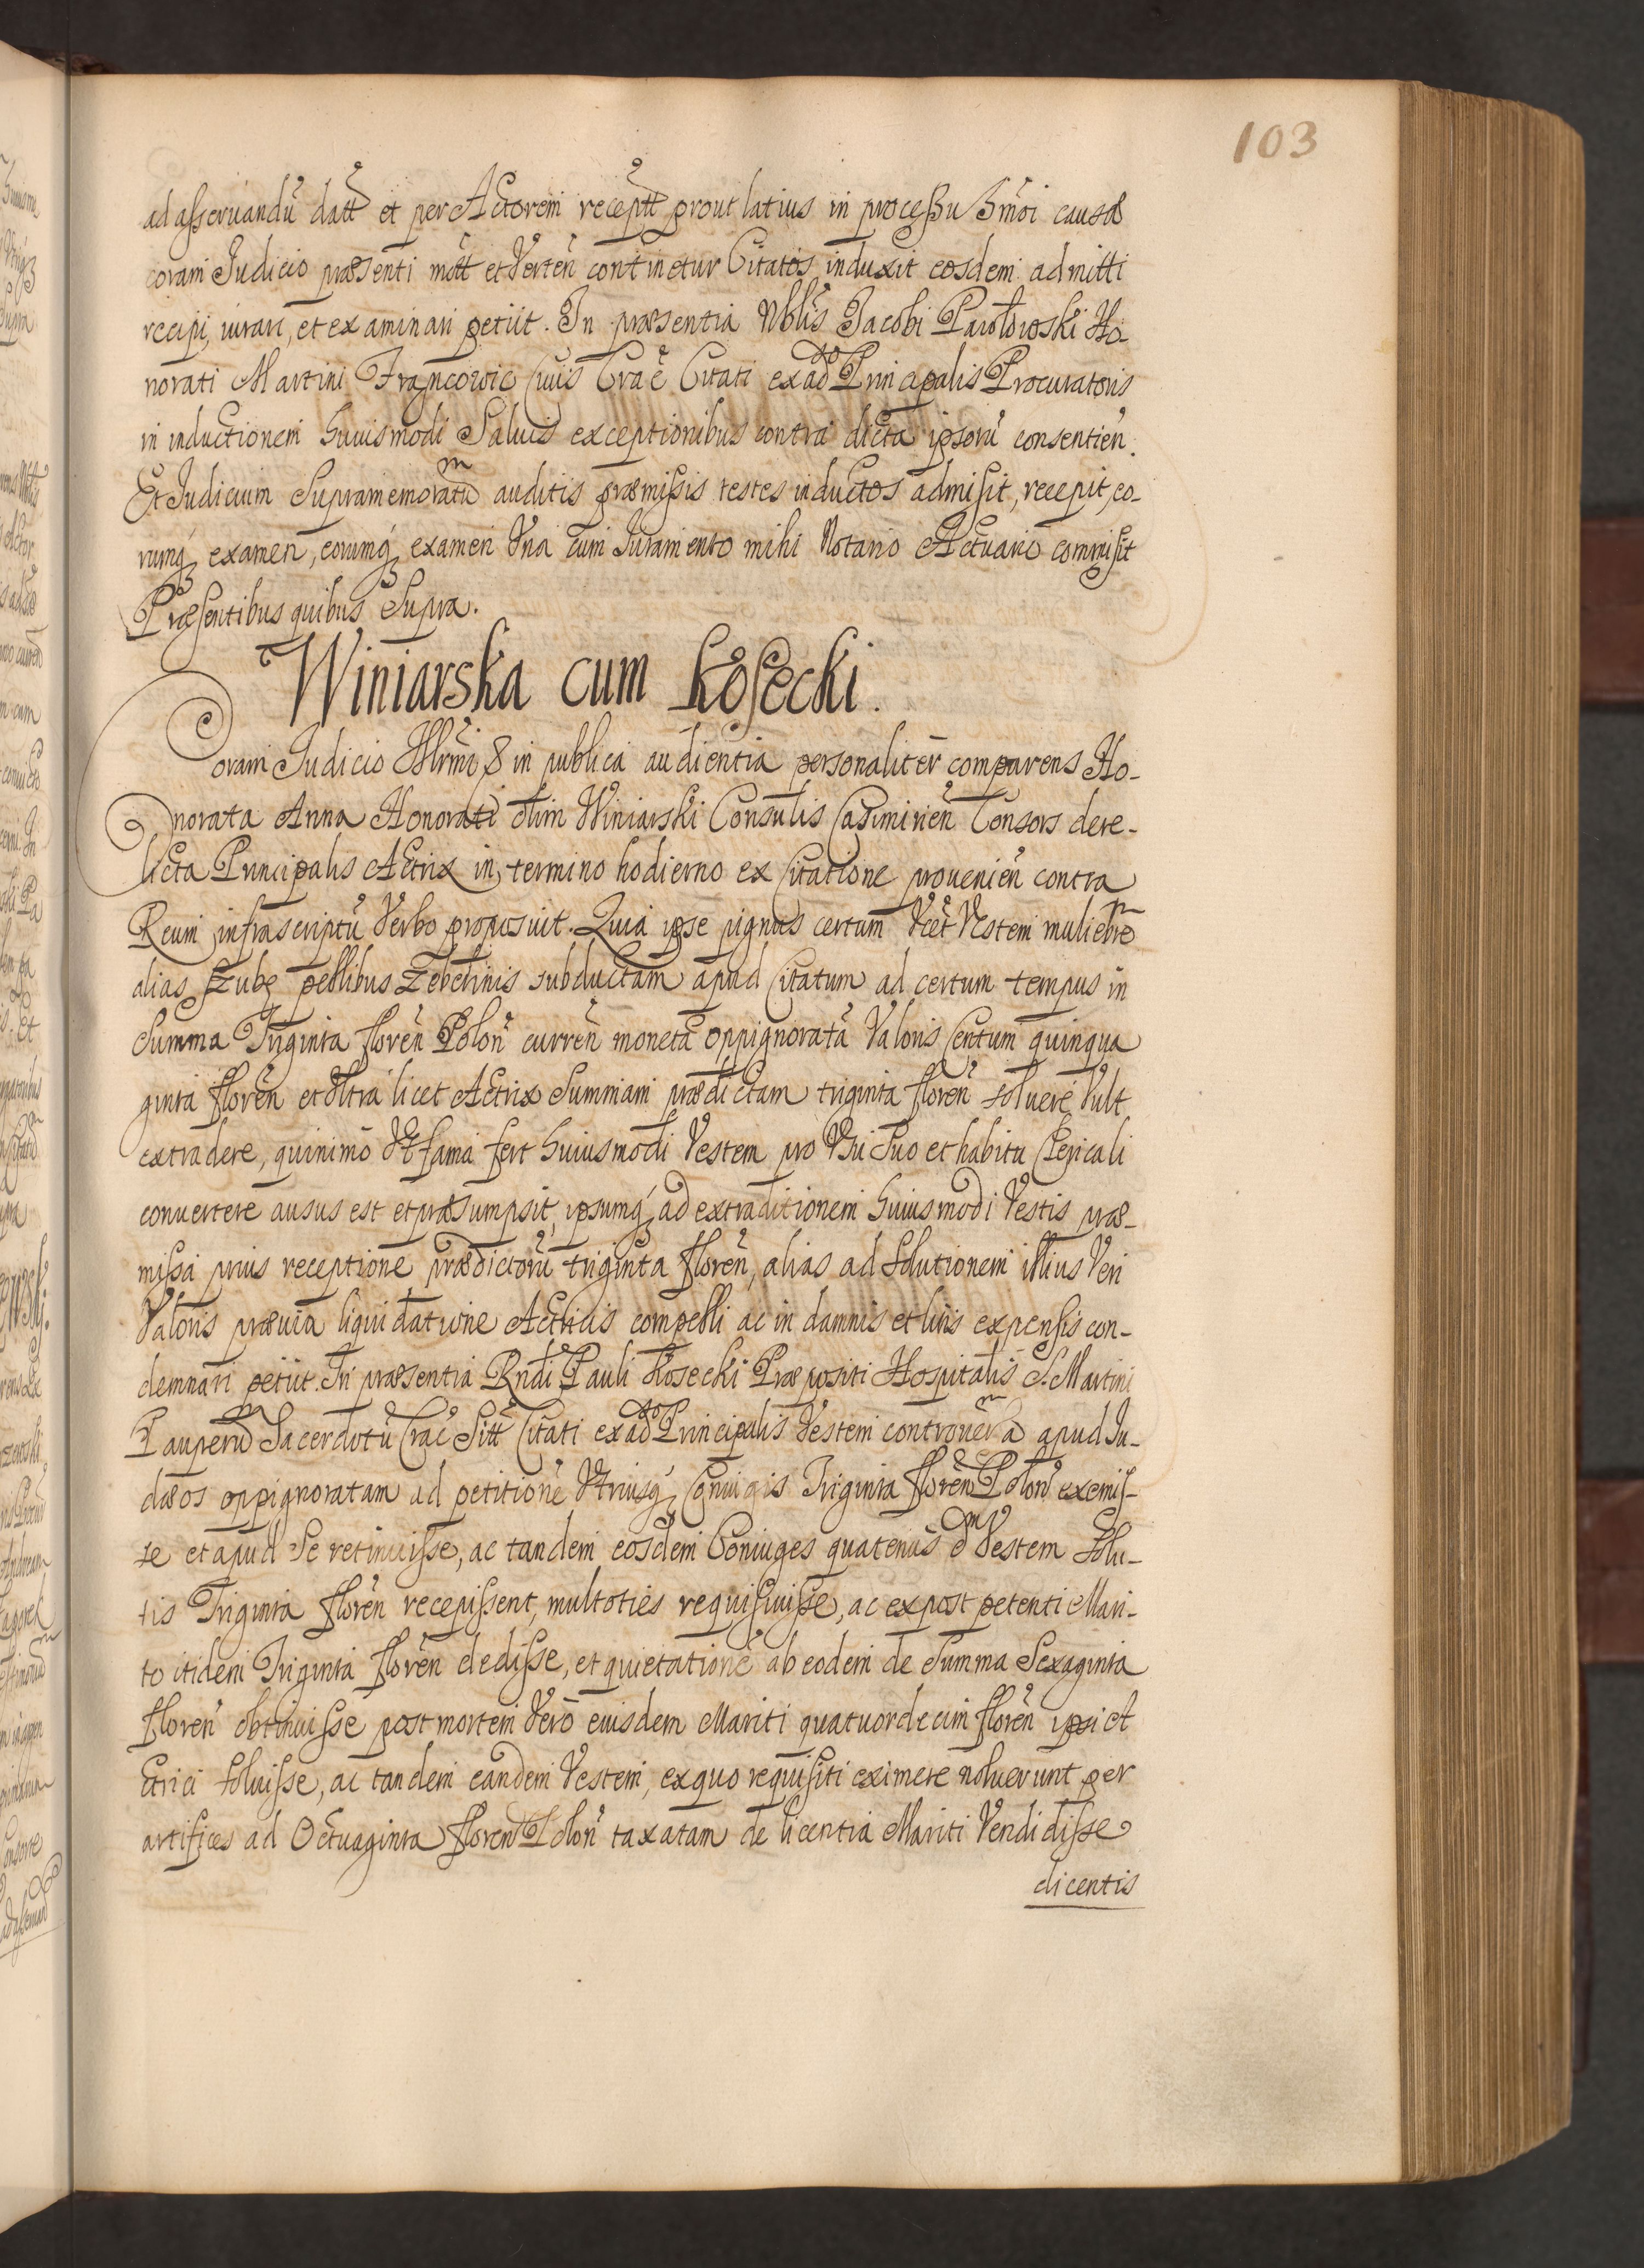 103
ad asseruandū datt et per Actorem receptt prout latius in processu hmōi causæ
coram Judicio præsenti mott et Verten continetur Citatos induxit eosdem admitti
recipi, iurari, et examinari petiit. In præsentia Nblis Jacobi Pawłowski Ho-
norati Martini Francowic Ciuis Cracē Citati ex adso Principalis Procuratoris
in inductionem huiusmodi Saluis exceptionibus contra dicta ipsorū consentien.
Et Judicium Supramemoratum auditis præmissis testes inductos admisit, recepit, eo-
rumq examen, eorumq examen Vna cum Juramento mihi Notario Actuario commisit
Præsentibus quibus Supra.
Winiarska cum Kosecki.
Coram Judicio Illrmi & in publica audientia personaliter comparens Ho-
norata Anna Honorati olim Winiarski Consulis Casimirien Consors dere-
licta Principalis Actrix in termino hodierno ex Citatione prouenien contra
Reum infrascriptū Verbo proposuit. Quia ipse pignus certum Vcet Vestem muliebrem
alias szubę pellibus Zebellinis subductam apud Citatum ad certum tempus in
Summa Triginta floren Polon curren moneta oppignoratā Valoris Centum quinqua
ginta floren et Vltra licet Actrix Summam prædictam triginta floren soluere Vult
extradere, quinimo Vt fama fert huiusmodi Vestem pro Vsu suo et habitu Clericali
conuertere ausus est et præsumpsit, ipsumq ad extraditionem huiusmodi Vestis præ-
missa prius receptione prædictorū triginta floren, alias ad solutionem illius Veri
Valoris præuia liquidatione Actricis compelli ac in damnis et litis expensis con-
demnari petiit. In præsentia Rndi Pauli Kosecki Præpositi Hospitalis S. Martini
Pauperum Sacerdotū Crac Sitt Citati ex adso Principalis Vestem controuersam apud Ju-
dæos oppignoratam ad petitionē Vtriusq Coniugis Triginta floren Polon exemis-
se et apud Se retinuisse, ac tandem eosdem Coniuges quatenus dm Vestem Solu-
tis Triginta floren recepissent, multoties requisiuisse, ac expost petenti Mari-
to itidem Triginta floren dedisse, et quietationē ab eodem de Summa Sexaginta
floren obtinuisse post mortem Vero eiusdem Mariti quatuordecim floren ipsi A
ctrici soluisse, ac tandem eandem Vestem, ex quo requisiti eximere noluerunt per
artifices ad Octuaginta floren Polon taxatam de licentia Mariti Vendidisse
dicentis